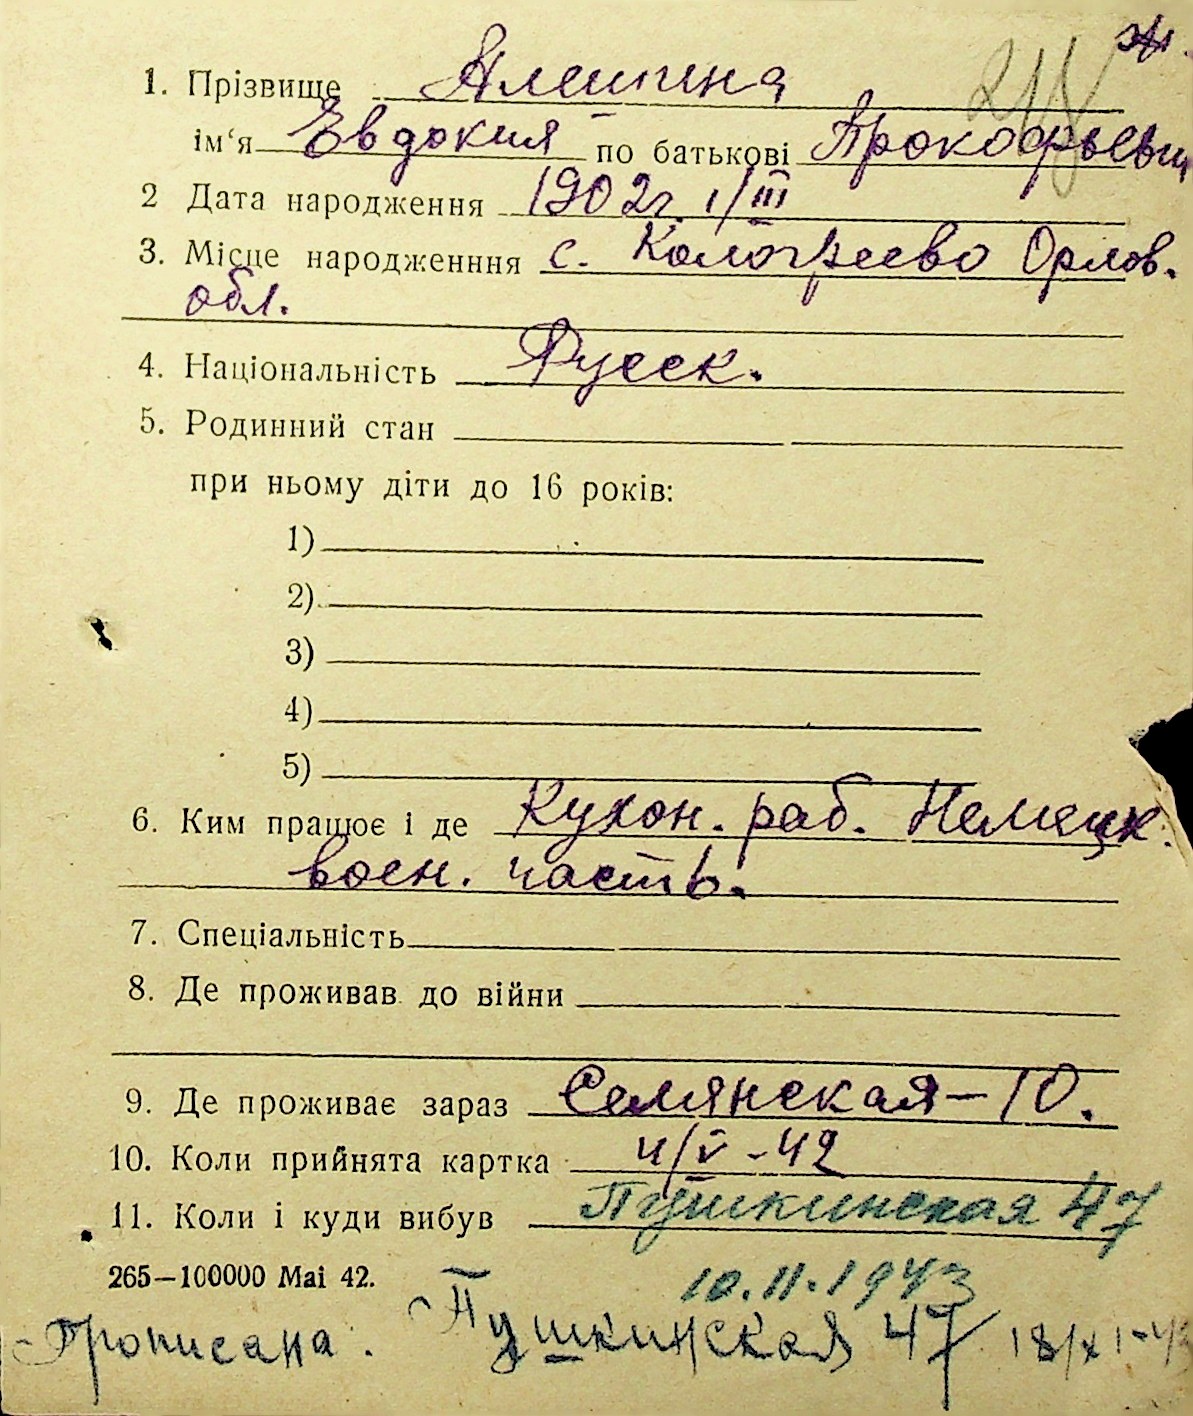 1. Прізвище Алешина
ім‘я Евдокия по батькові Прокофьевн
2 Дата народження 1902г. 1/III
3. Місце народженння с. Кологреево Орлов.
обл.
4. Національність Русск.
5. Родинний стан
при ньому діти до 16 років:
1)
2)
3)
4)
5)
6. Ким працює і де Кухон. раб. Немецк.
воен. часть.
7. Спеціальність
8. Де проживав до війни
9. Де проживає зараз Селянская-10.
10. Коли прийнята картка 4/V-42
11. Коли і куди вибув Пушкинская 47
10.11.1943
265—100000 Mai 42.
Прописана. Пушкинская 47 18/XI-43